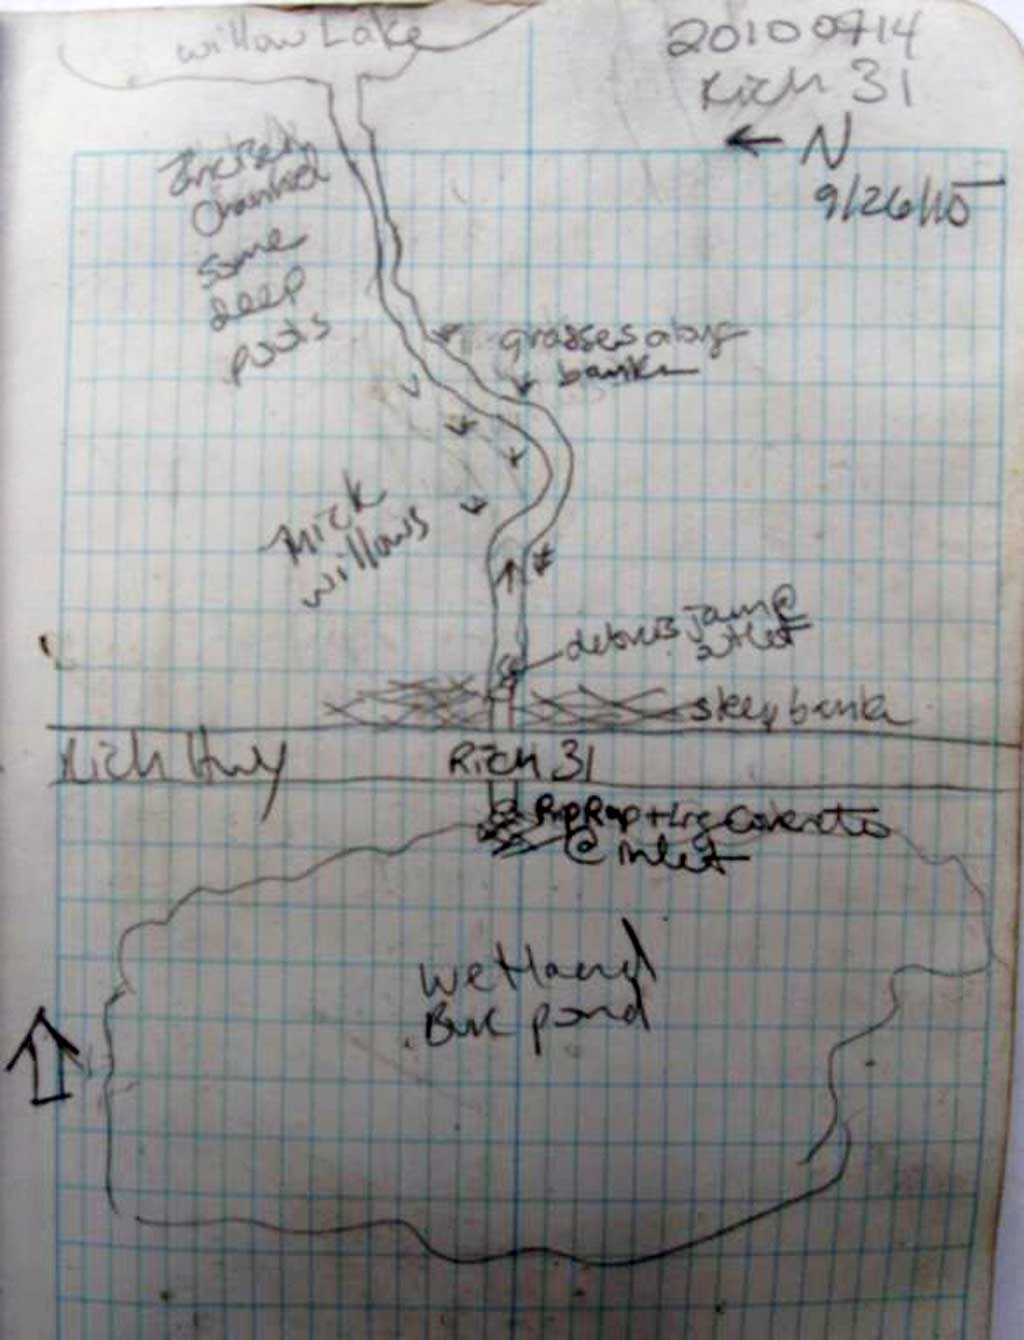 willow Lake
20100714
Rich 31
N
9/26/10
Channel
some
deep
pools
grasses along
banks
thick
willows
debris jam @
outlet
steep bank
Rich Hwy
Rich 31
RipRap + Lrg Concrete
@ inlet
Wetland
pond